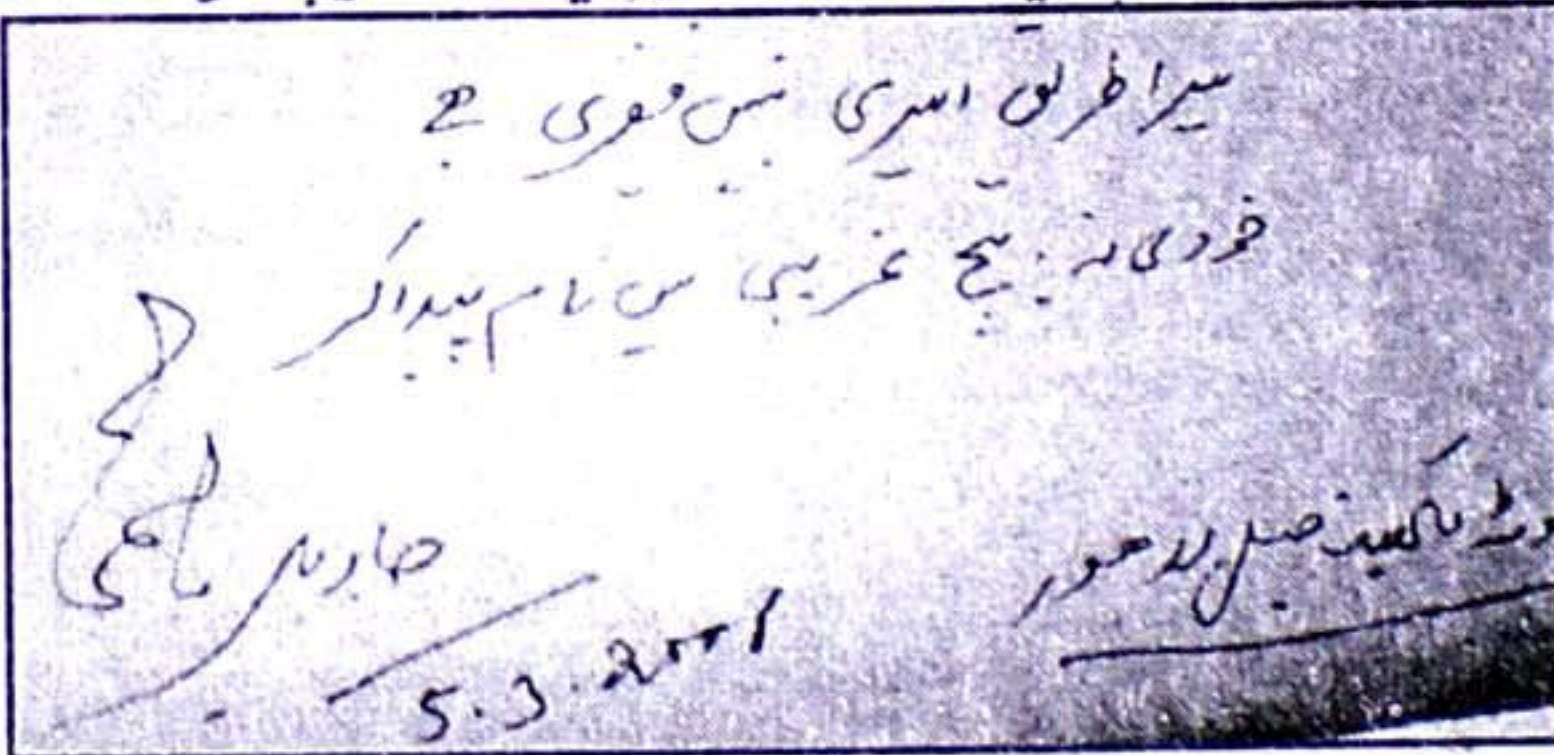 میرا طریق امیری نہیں فقیری ہے
خودی نہ بیچ غریبی میں نام پیدا کر
جاوید ہاشمی
کوٹ لکھپت جیل لاہور
5.3.2001